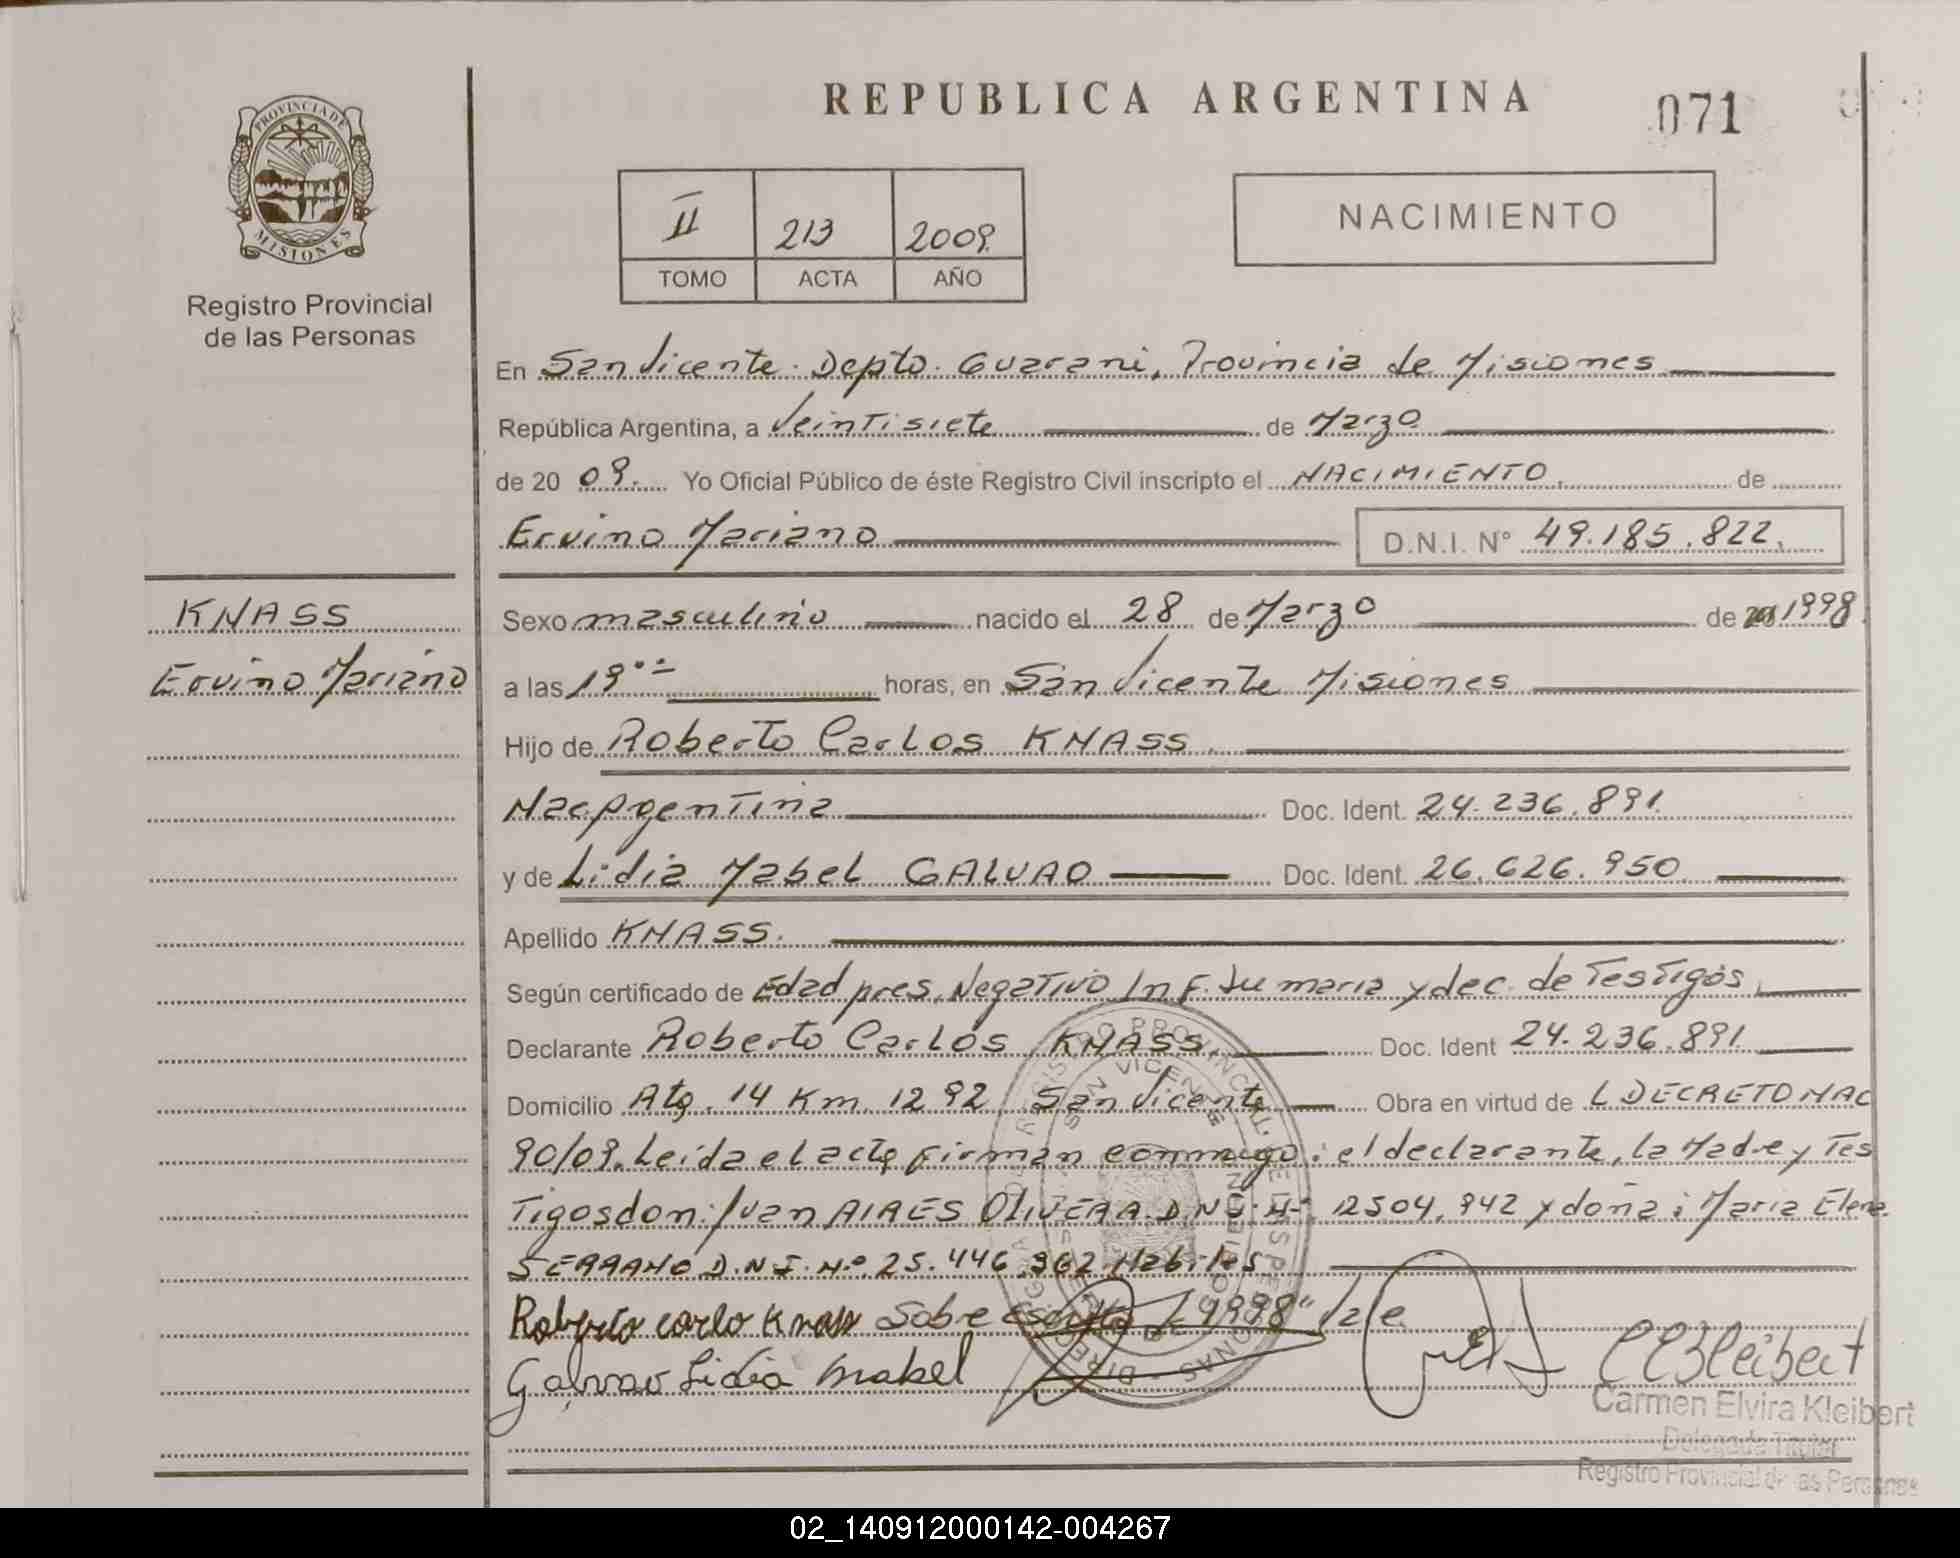 REPUBLICA ARGENTINA
071
PROVINCIA DE
MISIONES
Registro Provincial
de las Personas
II 213 2009.
TOMO ACTA AÑO
NACIMIENTO
En San Vicente. Depto. Guarani, Provincia de Misiones
República Argentina, a Veintisiete de Marzo
de 20 09. Yo Oficial Público de éste Registro Civil inscripto el NACIMIENTO. de
Ervino Mariano D.N.I. N° 49.185.822.
KNASS
Ervino Mariano
Sexo masculino nacido el 28 de Marzo de 1998.
a las 19°° horas, en San Vicente Misiones
Hijo de Roberto Carlos KNASS.
Nac Argentina Doc. Ident. 24.236.891
y de Lidia Mabel GALVAO Doc. Ident. 26.626.950
Apellido KNASS.
Según certificado de Edad pres, Negativo Inf. Sumaria y dec. de Testigos
Declarante Roberto Carlos KNASS. Doc. Ident 24.236.891
Domicilio Atg. 14 Km. 1292 San Vicente Obra en virtud de L DECRETO NAC
90/09. Leída el acta firman conmigo: el declarante, la Madre y Tes
Tigos don: Juan AIRES OliVERA. D.N.I. N° 12504.942 y doña: Maria Elena
SERRANO D.N.I. N° 25.446.962 Habiles
Roberto carlo Knass Sobre escrito "1998" Vale
Galvao Lidia Mabel
CEKleibert
Carmen Elvira Kleibert
Delegada Titular
Registro Provincial de las Personas
02_140912000142-004267